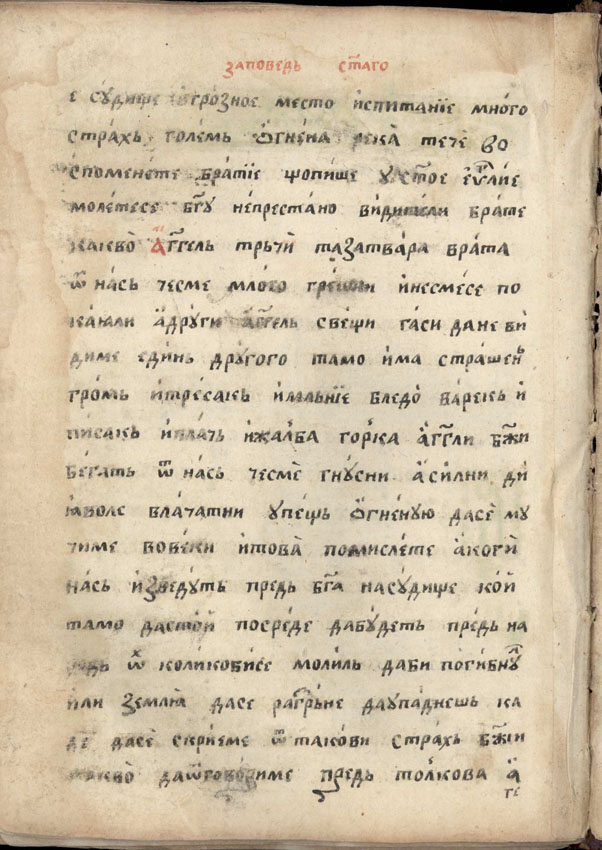 заповедь ст҃аго
е сꙋдище игрозное место испитанїе много
страхь големь ѻ҆гнена река̀ течѐ во
споменете братїе щопише ꙋ ст҃ое еѵⷢ҇лїе
молетесе бг҃ꙋ непрестано видители брате
какво̀ а҆гг҃ель трьти̏ тазатвара врата
ѿ нась чесме много грешни инесмесе по
каѧли а҆дрꙋги а҆гг҃ель свещи гаси дане ви
диме единь дрꙋгого тамо има страшень
громь итресакь и҆мльнїе бледо̀ варекь и҆
писакь и҆плачь и҆жалба горка а҆гг҃ли бж҃їи
бегать ѿ нась чесме гнꙋсни а҆силни дїꙗ
ꙗволе влачатни ꙋпещь ѻ҆гненꙋю дасѐ мꙋ
чиме вовеки и҆това̀ помислете а҆коги̏
нась и҆зведꙋть предь бг҃а насꙋдище кои̏
тамо дастои̏ посреде дабꙋдеть предь на
ѡⷯ коликобисе молиль даби погибнꙋⷧ
или землꙗ дасе рагрьне даꙋпаднешь ка
де дасѐ скриеме ѿ такови страхь бж҃їи
какво̀ даѿговориме предь толкова а҆
ге